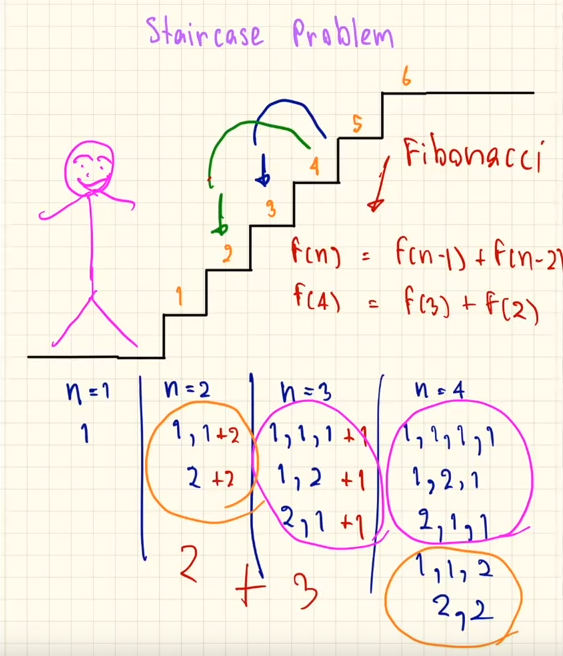 Staircase Problem
6
5
4
3
2
1
Fibonacci
f(n) = f(n-1) + f(n-2)
f(4) = f(3) + f(2)
n=1
1
n=2
1,1+2
2+2
n=3
1,1,1+1
1,2+1
2,1+1
2 + 3
n=4
1,1,1,1
1,2,1
2,1,1
1,1,2
2,2